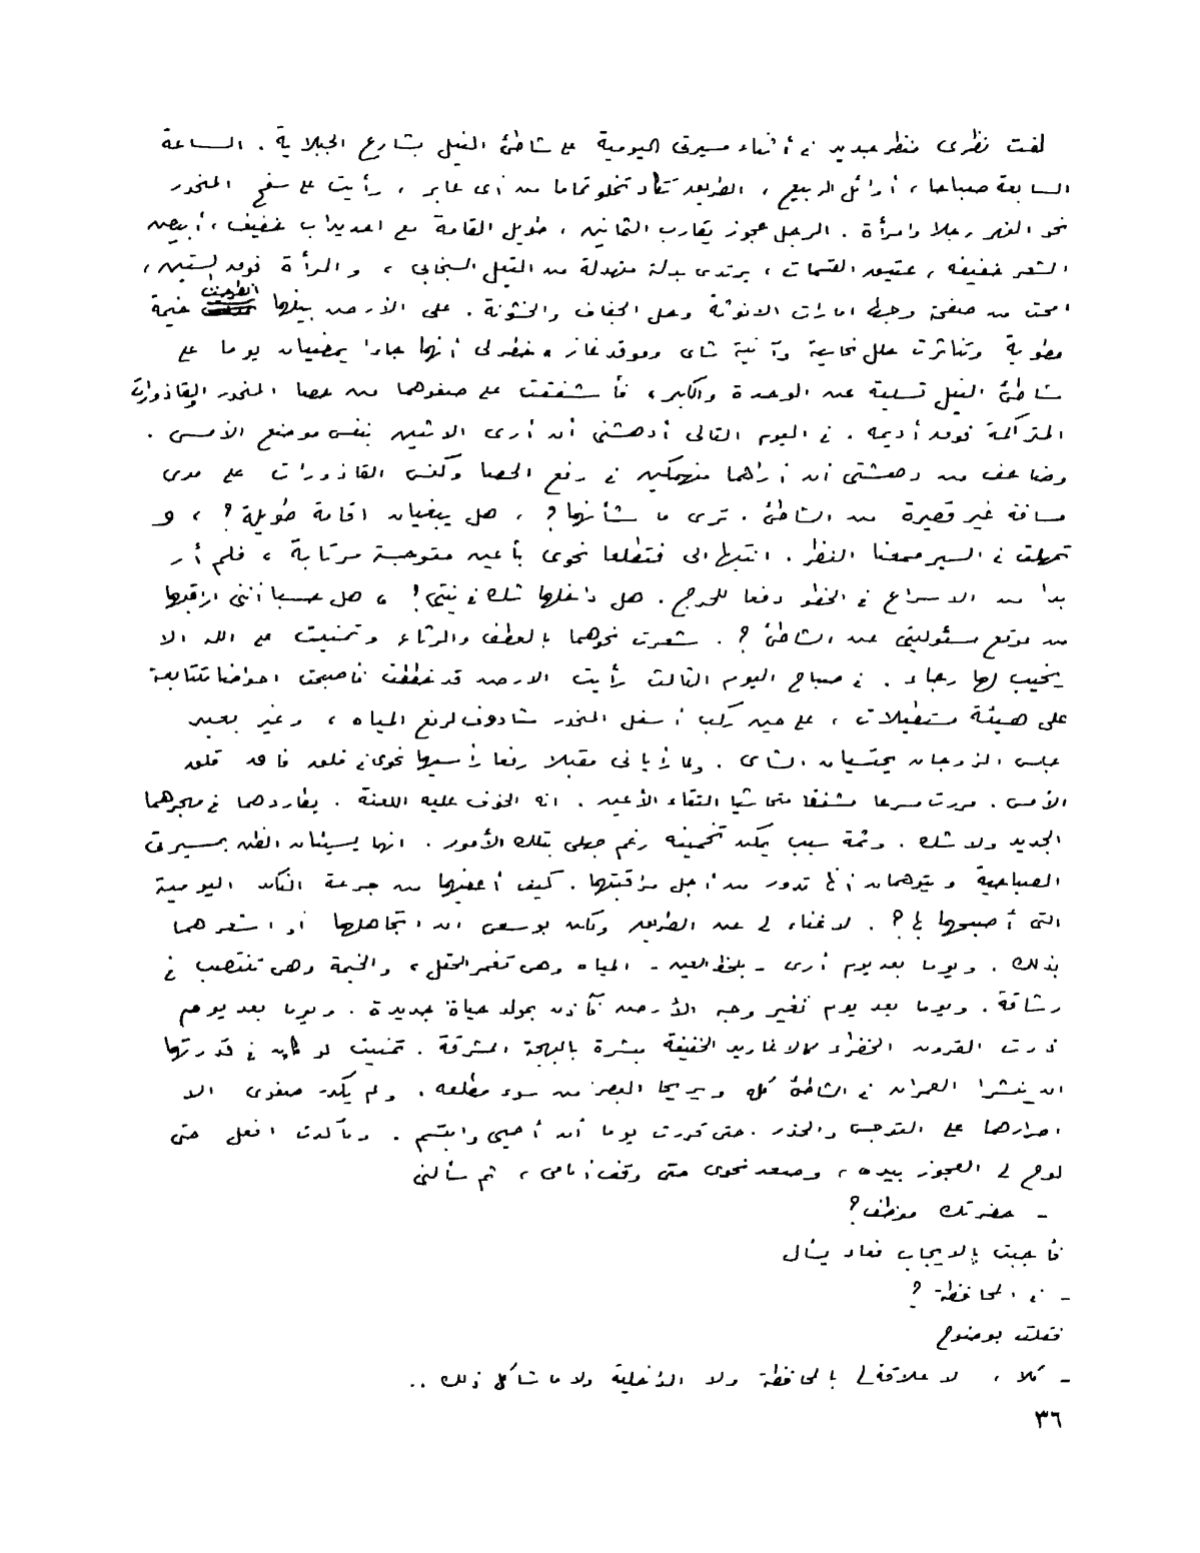 لفت نظرى منظر جديد فى أثناء مسيرتى اليومية على شاطئ النيل بشارع الجبلاية . الساعة
السابعة صباحا ، أوائل الربيع ، الطريق تكاد تخلو تماما من أى عابر ، رأيت على سفح المنحدر
نحو النهر رجلا وامرأة . الرجل عجوز يقارب الثمانين ، طويل القامة مع احديداب خفيف ، أبيض
الشعر خفيفه ، عتيق القسمات ، يرتدى بدلة متهدلة من التيل السنجابى ، والمرأة فوق الستين ،
امحت من صفحة وجهها امارات الانوثة وحل الجفاف والخشونة . على الأرض بينهما انطرحت خيمة
مطوية وتناثرت حلل نحاسية وآنية شاى وموقد غاز . خطر لى أنهما جاءا يمضيان يوما على
شاطئ النيل تسلية عن الوحدة والكبر ، فأشفقت على صفوهما من حصا المنحدر والقاذورات
المتراكمة فوق أديمه . فى اليوم التالى أدهشنى أن أرى الاثنين بنفس موضع الأمس .
وضاعف من دهشتى أن أراهما منهمكين فى رفع الحصا وكنس القاذورات على مدى
مسافة غير قصيرة من الشاطئ . ترى ما شأنهما ? ، هل يبغيان اقامة طويلة ? ، و
تمهلت فى السير ممعنا النظر . انتبها الى فتطلعا نحوى بأعين متوجسة مرتابة ، فلم أر
بدا من الاسراع فى الخطو دفعا للحرج . هل داخلهما شك فى نيتى ! ، هل حسبا أننى اراقبهما
من موقع مسئوليتى عن الشاطئ ? . شعرت نحوهما بالعطف والرثاء وتمنيت على الله الا
يخيب لهما رجاء . فى صباح اليوم الثالث رأيت الارض قد خططت فأصبحت احواضا متتابعة
على هيئة مستطيلات ، على حين ركب أسفل المنحدر شادوف لرفع المياه ، وغير بعيد
جلس الزوجان يحتسيان الشاى . ولما رأيانى مقبلا رفعا رأسيهما نحوى فى قلق فاق قلق
الأمس . مررت مسرعا مشفقا متحاشيا التقاء الأعين . انه الخوف عليه اللعنة . يطاردهما فى مهجرهما
الجديد ولا شك . وثمة سبب يمكن تخمينه رغم جهلى بتلك الأمور . انهما يسيئان الظن بمسيرتى
الصباحية ويتوهمان أنها تدور من أجل مراقبتهما . كيف أعفيهما من جرعة النكد اليومية
التى أصبحها بها ? . لا غناء لى عن الطريق وكان بوسعى ان اتجاهلهما أو استعرهما
بذلك . ويوما بعد يوم أرى - بلحظ العين - المياه وهى تغمر الحقل ، والخيمة وهى تنتصب فى
رشاقة . ويوما بعد يوم تغير وجه الأرض فآذن بمولد حياة جديدة . ويوما بعد يوم
ذرت القرون الخضراء كالاغاريد الخفيفة مبشرة بالبهجة المشرقة . تمنيت لو كان فى قدرتهما
ان ينشرا العمران فى الشاطئ كله ويريحا البصر من سوء مطلعه . ولم يكدر صفوى الا
اصرارهما على التوجس والحذر . حتى قررت يوما أن أحيى وابتسم . وما كدت افعل حتى
لوح لى العجوز بيده ، وصعد نحوى حتى وقف أمامى ، ثم سألنى
- حضرتك موظف ?
فأجبت بالايجاب فعاد يسأل
- فى المحافظة ?
فقلت بوضوح
- كلا ، لا علاقة لى بالمحافظة ولا الداخلية ولا ما شاكل ذلك ..
٣٦